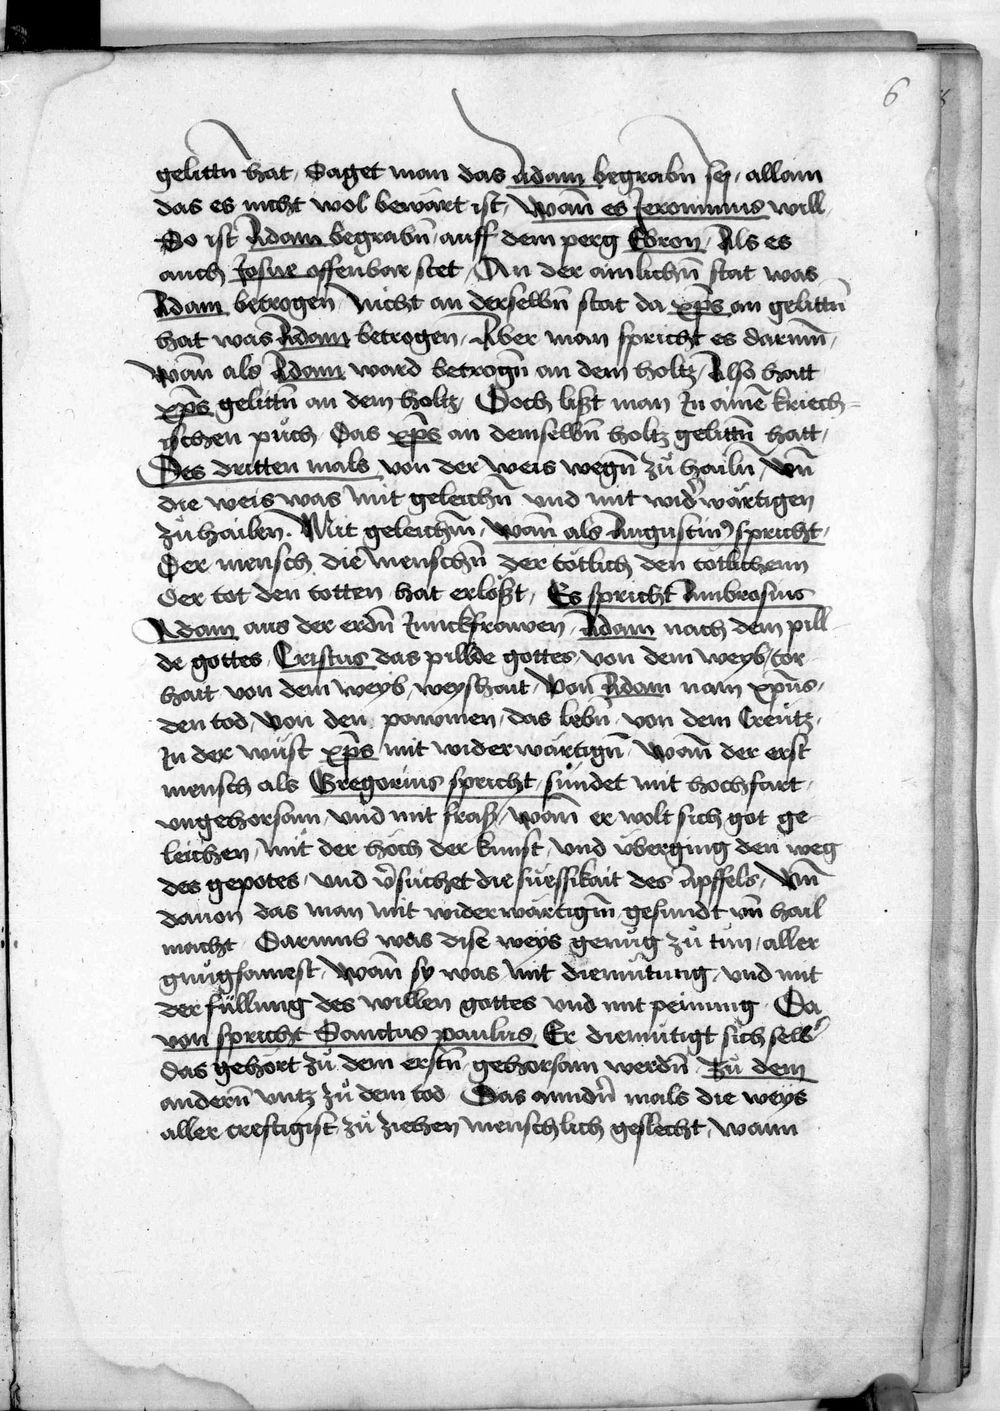 6
gelittn̄ hat, Saget man das Adam begrabn̄ sey, allain
das es nicht wol bewärt ist, wann̄ es Jeronimus will,
So ist Adam begrabn̄ auff dem perg Ebron, Als es
auch Josue offenbar stet, An der ainlichn̄ stat was
Adam betrogen, Nicht an derselbn̄ stat da xp̄s an gelittn̄
hat was Adam betrogen, Aber man spricht es darum̄,
wann̄ als Adam ward betrogn̄ an dem holtz, Also hatt
xp̄s gelittn̄ an dem holtz, Doch lißt man In ainē kriech=
ischen půch, Das xp̄s an demselbn̄ holtz gelittn̄ hatt,
Des dritten mals von der weis wegn̄ zů hailn̄, vn̄
die weis was mit geleichn̄ und mit widerwärtigen
zů hailen. Mit geleichn̄, wann̄ als Augustin9 spricht,
Der mensch die menschn̄ der tötlich den tötlichenn
Der tot den totten hat erlößt, Es spricht Ambrosius
Adam aus der erdn̄ Junckfrawen, Adam nach dem pill
de gottes, Cristus das pillde gottes, von dem weyb, tor
hait von dem weyb, weyshait, von Adam nam xpūs,
den tod, von den pawmen, das lebn̄, von dem Creütz,
In der wüst xp̄s mit widerwärtign̄, wann̄ der erst
mensch als Gregorius spricht, sündet mit hochfart,
vngehorsam, vnd mit fraß, wann̄ er wolt sich got ge
leichen, mit der höch der kunst, vnd überging den weg
des gepotes, vnd v̄sůchet die süessikait des äpffels, vn̄
dauon das man mit widerwärtigm̄ gesundt vn̄ hail
macht, Darumb was dise weys genůg zů tůn, aller
gnůgsamest, wann̄ sy was mit diemütung, vnd mit
der füllung des willen gottes vnd mit peinung, Da
von spricht Sanctus paulus, Er diemütigt sich selb
das gehört zů dem erstn̄ gehorsam werdn̄, Zů dem
andern̄ vntz zů dem tod, Das anndn̄ mals die weys
aller creftigist zů ziehen menschlich geslecht, wann